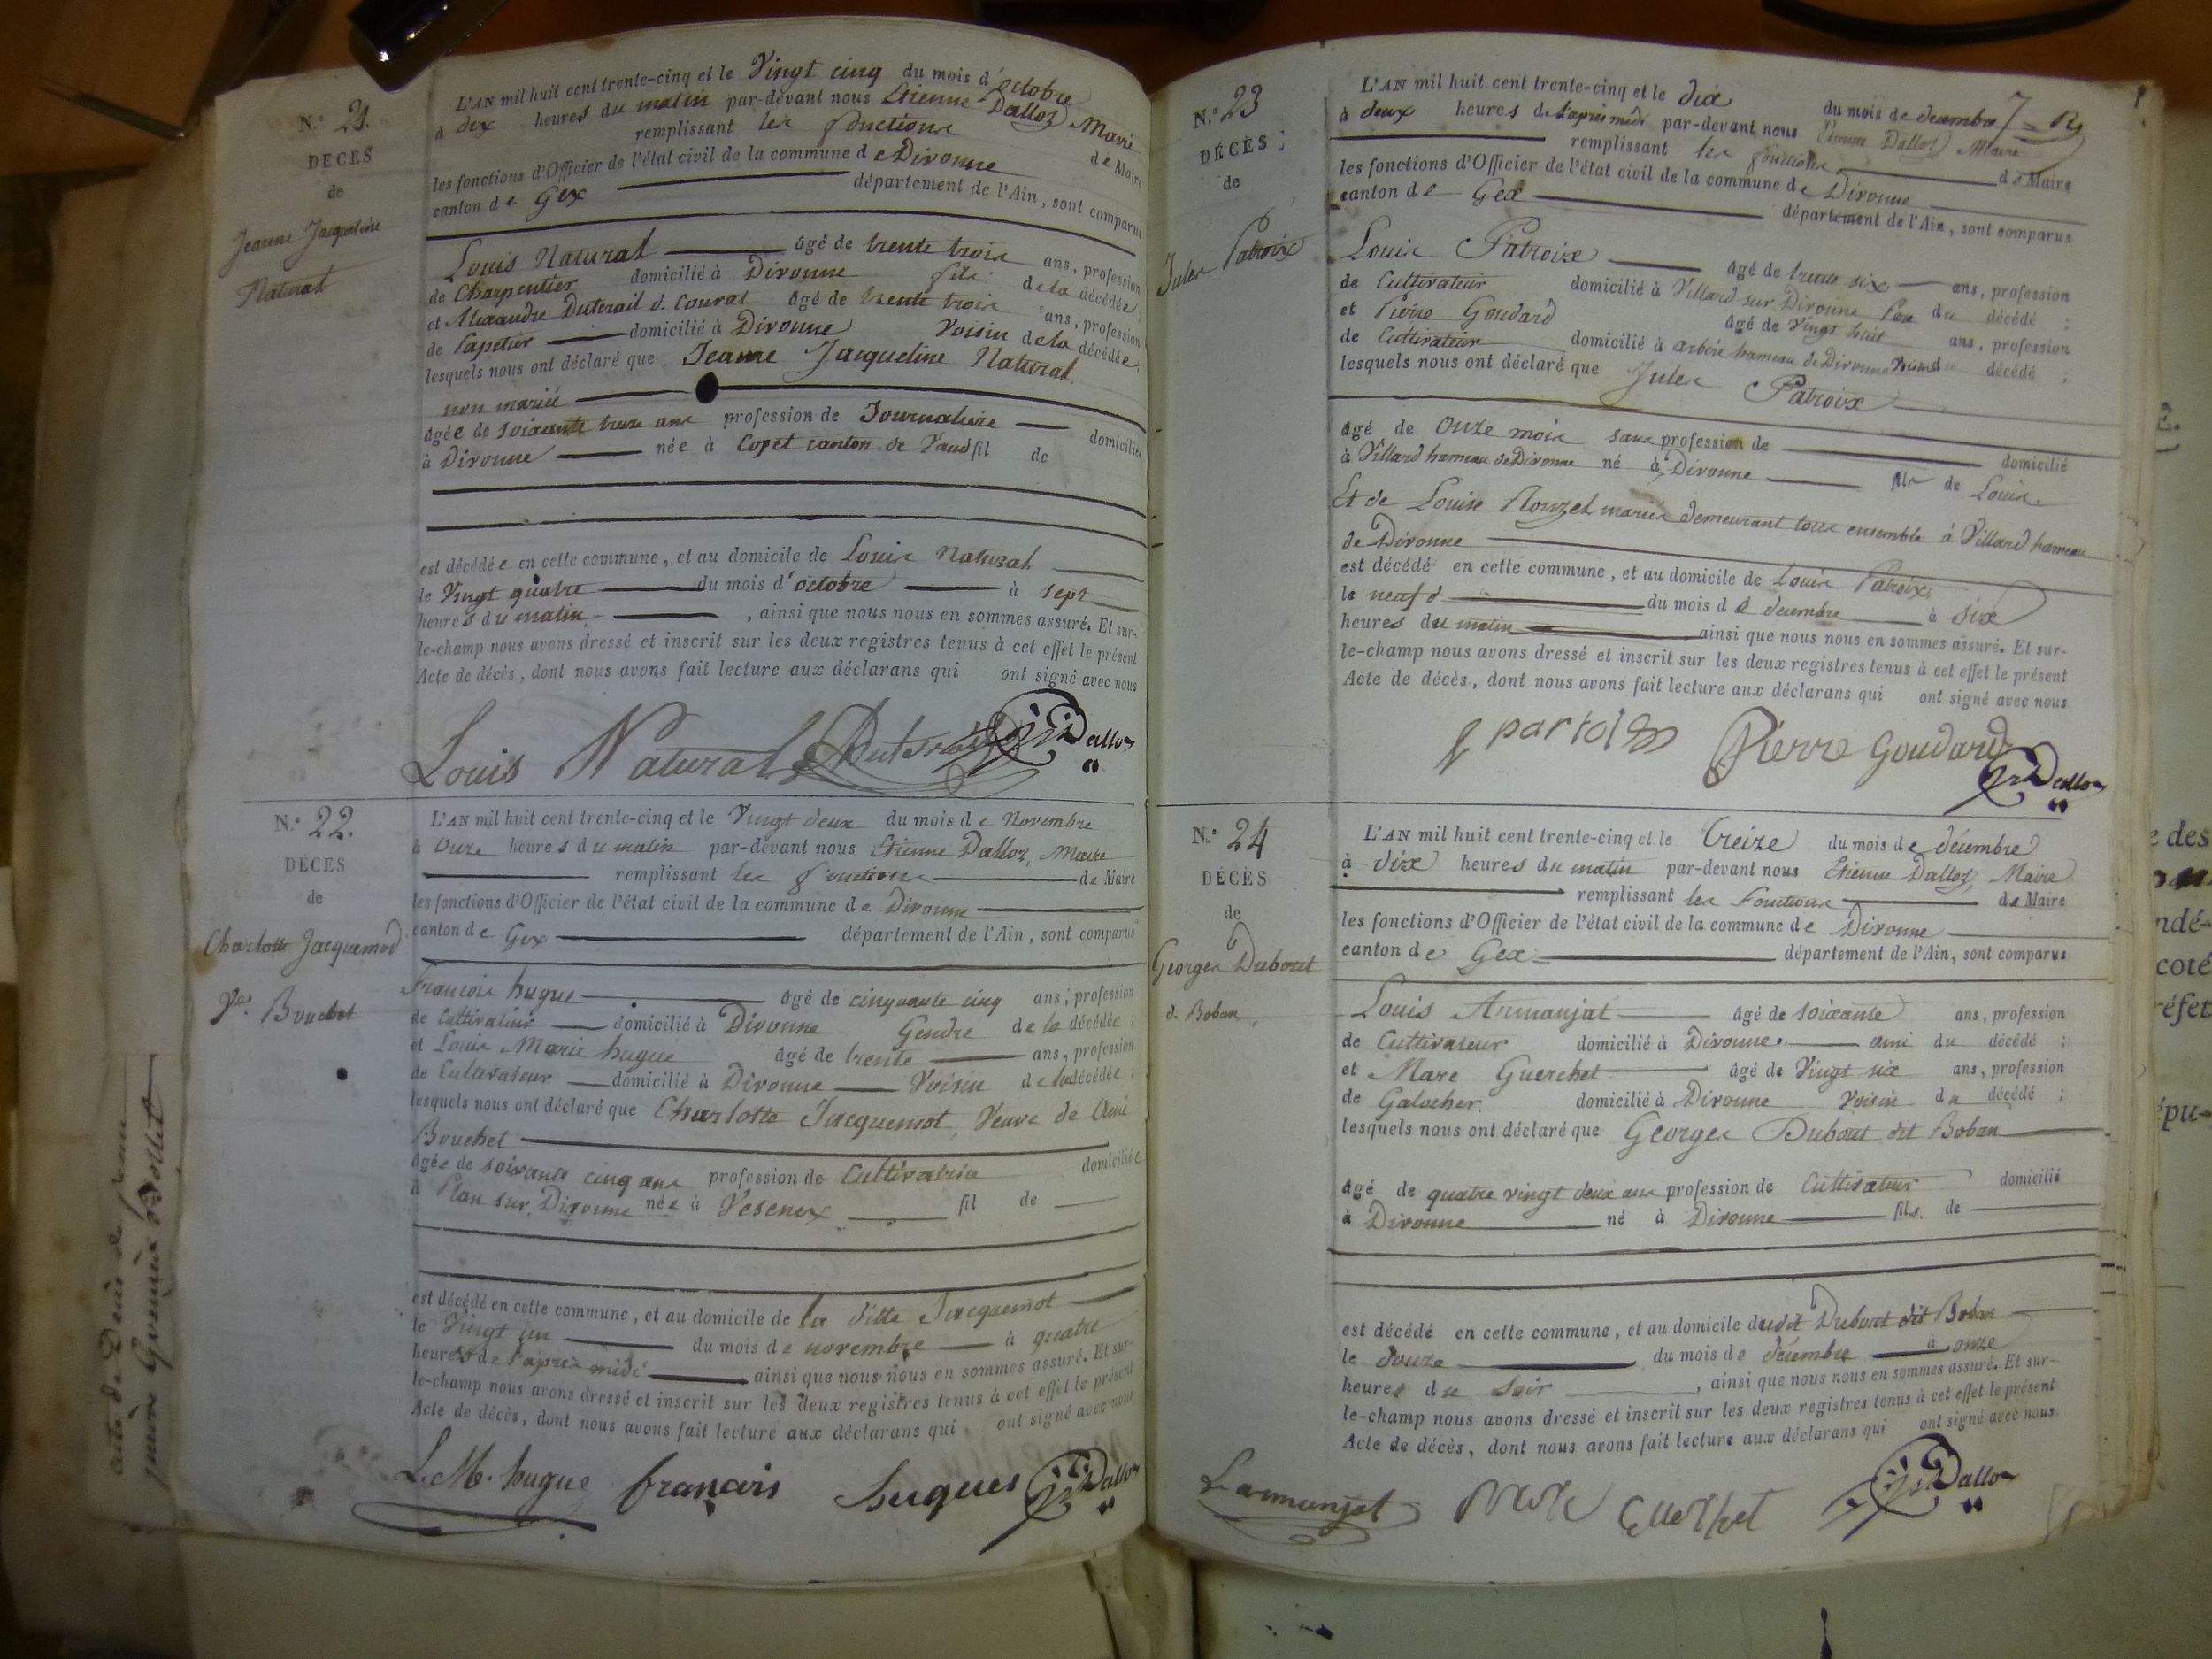 N.° 21.
DÉCÈS
de
Jeanne Jacqueline
Natural
L'AN mil huit cent trente-cinq et le Vingt cinq du mois d'octobre
à dix heures du matin par-devant nous Etienne Dalloz Maire
remplissant les fonctions de Maire
les fonctions d'Officier de l'état civil de la commune de Divonne
canton de Gex département de l'Ain, sont comparus
Louis Natural âgé de trente trois ans, profession
de Charpentier domicilié à Divonne fils de la décédée ;
et Alexandre Duterail d. Courat âgé de trente trois ans, profession
de Papetier domicilié à Divonne Voisin de la décédée ;
lesquels nous ont déclaré que Jeanne Jacqueline Natural
non mariée
âgée de soixante treize ans profession de Journalière domiciliée
à Divonne née à Copet canton de Vaud fil de
est décédée en cette commune, et au domicile de Louis Natural
le Vingt quatre du mois d'octobre à sept
heures du matin , ainsi que nous nous en sommes assuré. Et sur-
le-champ nous avons dressé et inscrit sur les deux registres tenus à cet effet le présent
Acte de décès, dont nous avons fait lecture aux déclarans qui ont signé avec nous
Louis Natural Duterail Dalloz
N.° 22.
DÉCES
de
Charlotte Jacquemod
Ve. Bouchet
L'AN mil huit cent trente-cinq et le Vingt deux du mois de Novembre
à Onze heures du matin par-devant nous Etienne Dalloz, Maire
remplissant les fonctions de Maire
les fonctions d'Officier de l'état civil de la commune de Divonne
canton de Gex département de l'Ain, sont comparus
François hugue âgé de cinquante cinq ans, profession
de Cultivateur domicilié à Divonne Gendre de la décédée ;
et Louis Marie hugue âgé de trente ans, profession
de Cultivateur domicilié à Divonne Voisin de la décédée ;
lesquels nous ont déclaré que Charlotte Jacquemot, Veuve de Amé
Bouchet
âgée de soixante cinq ans profession de Cultivatrice domiciliée
à Plan sur Divonne née à Vesenex fil de
est décédé en cette commune, et au domicile de la ditte Jacquemot
le Vingt un du mois de novembre à quatre
heures de l'après midi ainsi que nous nous en sommes assuré. Et sur-
le-champ nous avons dressé et inscrit sur les deux registres tenus à cet effet le présent
Acte de décès, dont nous avons fait lecture aux déclarans qui ont signé avec nous
L. M. hugue françois hugues Dalloz
N.° 23
DÉCÈS
de
Jules Patroix
L'AN mil huit cent trente-cinq et le dix du mois de décembre
à deux heures de l'après midi par-devant nous Etienne Dalloz Maire
remplissant les fonctions de Maire
les fonctions d'Officier de l'état civil de la commune de Divonne
canton de Gex département de l'Ain, sont comparus
Louis Patroix âgé de trente six ans, profession
de Cultivateur domicilié à Villard sur Divonne Père du décédé ;
et Pierre Goudard âgé de Vingt huit ans, profession
de Cultivateur domicilié à arbère hameau de Divonne Voisin du décédé ;
lesquels nous ont déclaré que Jules Patroix
âgé de Onze mois sans profession de domicilié
à Villard hameau de Divonne né à Divonne fils de Louis
Et de Louise Rouzet mariés demeurant tous ensemble à Villard hameau
de Divonne
est décédé en cette commune, et au domicile de Louis Patroix
le neuf du mois de décembre à six
heures du matin ainsi que nous nous en sommes assuré. Et sur-
le-champ nous avons dressé et inscrit sur les deux registres tenus à cet effet le présent
Acte de décès, dont nous avons fait lecture aux déclarans qui ont signé avec nous
Pierre Goudard Dalloz
N.° 24
DÉCÈS
de
Georges Dubout
d. Boban
L'AN mil huit cent trente-cinq et le Treize du mois de décembre
à dix heures du matin par-devant nous Etienne Dalloz, Maire
remplissant les fonctions de Maire
les fonctions d'Officier de l'état civil de la commune de Divonne
canton de Gex département de l'Ain, sont comparus
Louis Armanjat âgé de soixante ans, profession
de Cultivateur domicilié à Divonne ami du décédé ;
et Marc Guerchet âgé de Vingt six ans, profession
de Galocher domicilié à Divonne Voisin du décédé ;
lesquels nous ont déclaré que Georges Dubout dit Boban
âgé de quatre vingt deux ans profession de Cultivateur domicilié
à Divonne né à Divonne fils de
est décédé en cette commune, et au domicile dudit Dubout dit Boban
le douze du mois de décembre à onze
heures du soir , ainsi que nous nous en sommes assuré. Et sur-
le-champ nous avons dressé et inscrit sur les deux registres tenus à cet effet le présent
Acte de décès, dont nous avons fait lecture aux déclarans qui ont signé avec nous
L armanjat Marc Guerchet Dalloz